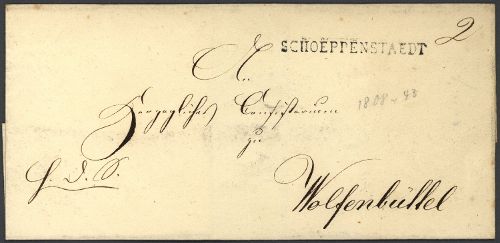 SCHOEPPENSTAEDT
2
An
Herzogliches Consistorium
1808-43
zu
H. D. S.
Wolfenbüttel